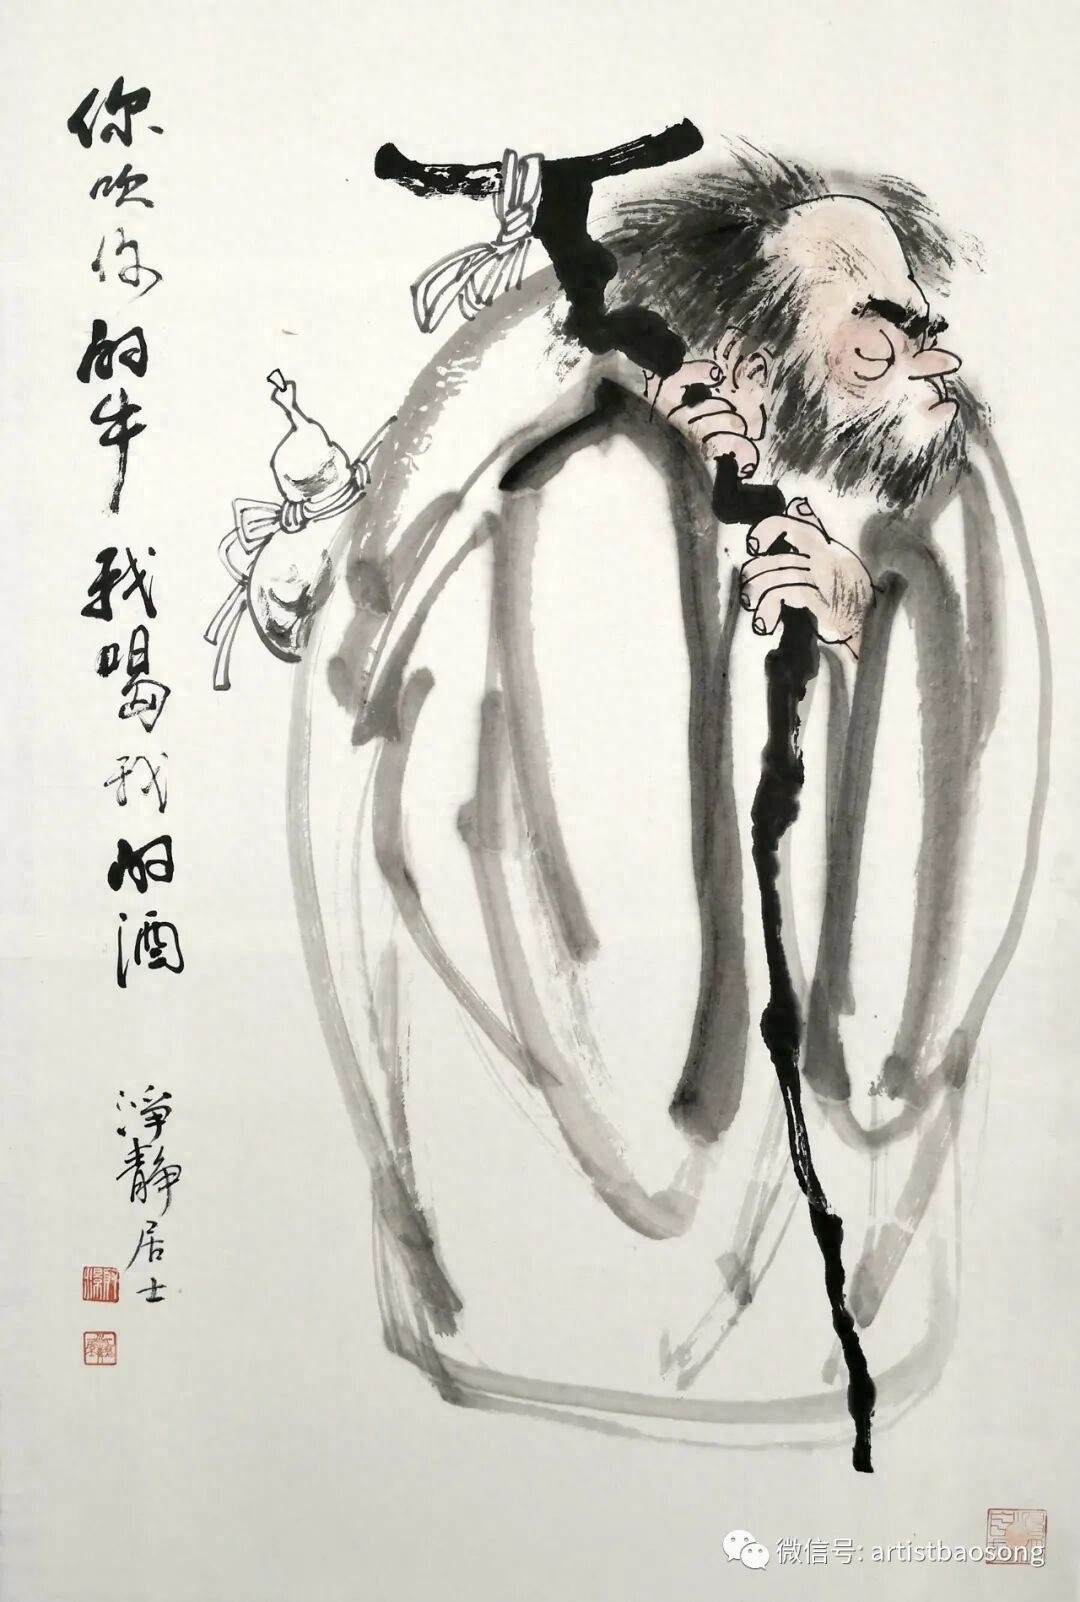 你吹你的牛 我喝我的酒
淨靜居士
微信号: artistbaosong